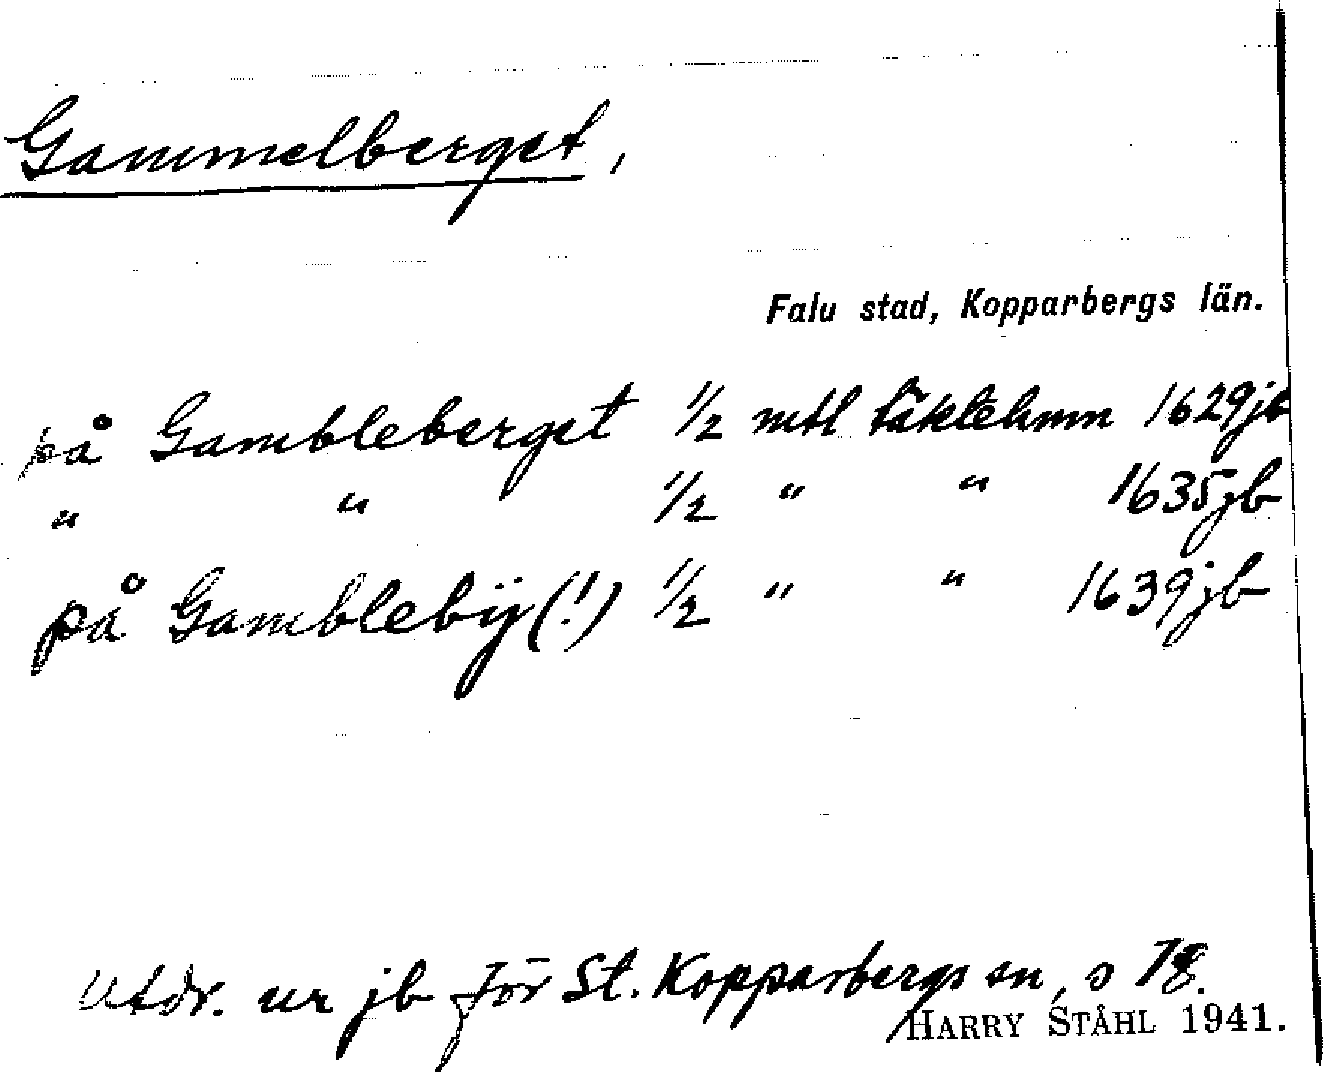 Gammelberget,
Falu stad, Kopparbergs län.
på Gambleberget 1/2 mtl täktehmn 1629 jb
" " 1/2 " " 1635 jb
på Gamblebÿ (!) 1/2 " " 1639 jb
Utdr. ur jb för St. Kopparbergs sn, s 78.
HARRY STÅHL 1941.